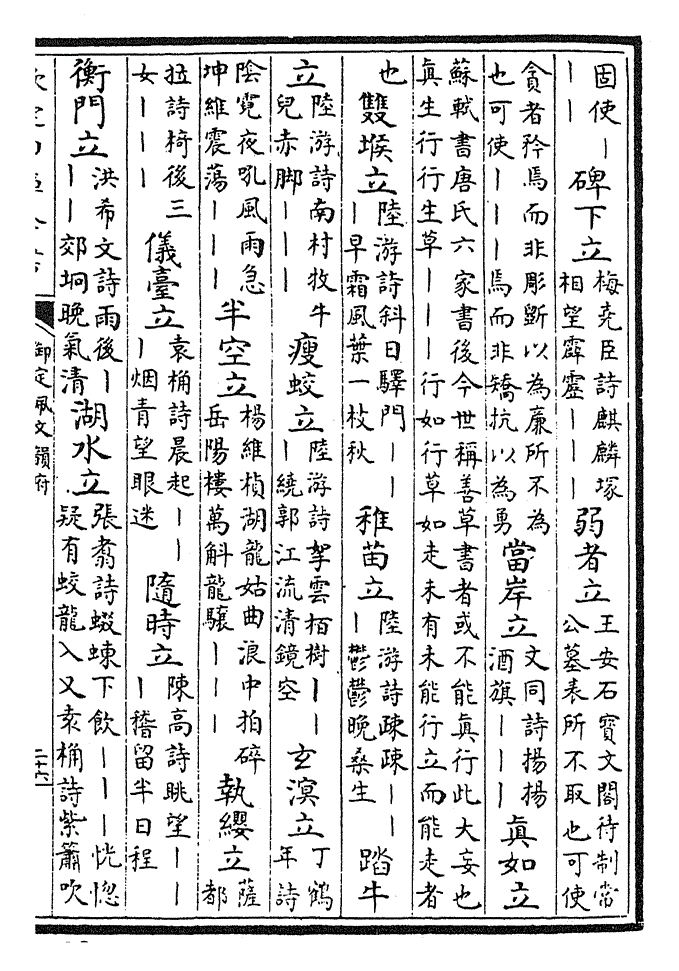 固使｜｜｜碑下立梅堯臣詩麒麟塚相望霹靂｜｜｜弱者立王安石寳文閣待制常公墓表所不取也可使
貪者矜焉而非彫斵以為廉所不為也可使｜｜｜焉而非矯抗以為勇當岸立文同詩揚揚酒旗｜｜｜眞如立
蘇軾書唐氏六家書後今世稱善草書者或不能眞行此大妄也眞生行行生草｜｜｜行如行草如走未有未能行立而能走者
也雙堠立陸游詩斜日驛門｜｜｜早霜風葉一枝秋稚苗立陸游詩疎疎｜｜｜鬱鬱晚桑生踏牛
立陸游詩南村牧牛兒赤脚｜｜｜瘦蛟立陸游詩拏雲栢樹｜｜｜繞郭江流清鏡空玄溟立丁鶴年詩
陰霓夜吼風雨急坤維震蕩｜｜｜半空立楊維楨湖龍姑曲浪中拍碎岳陽樓萬斛龍驤｜｜｜執纓立薩都
拉詩椅後三女｜｜｜儀臺立袁桷詩晨起｜｜｜烟青望眼迷隨時立陳高詩眺望｜｜｜稽留半日程
衡門立洪希文詩雨後｜｜｜郊坰晚氣清湖水立張翥詩蝃蝀下飲｜｜｜恍惚疑有蛟龍入又袁桷詩紫簫吹
御定佩文韻府
二十六